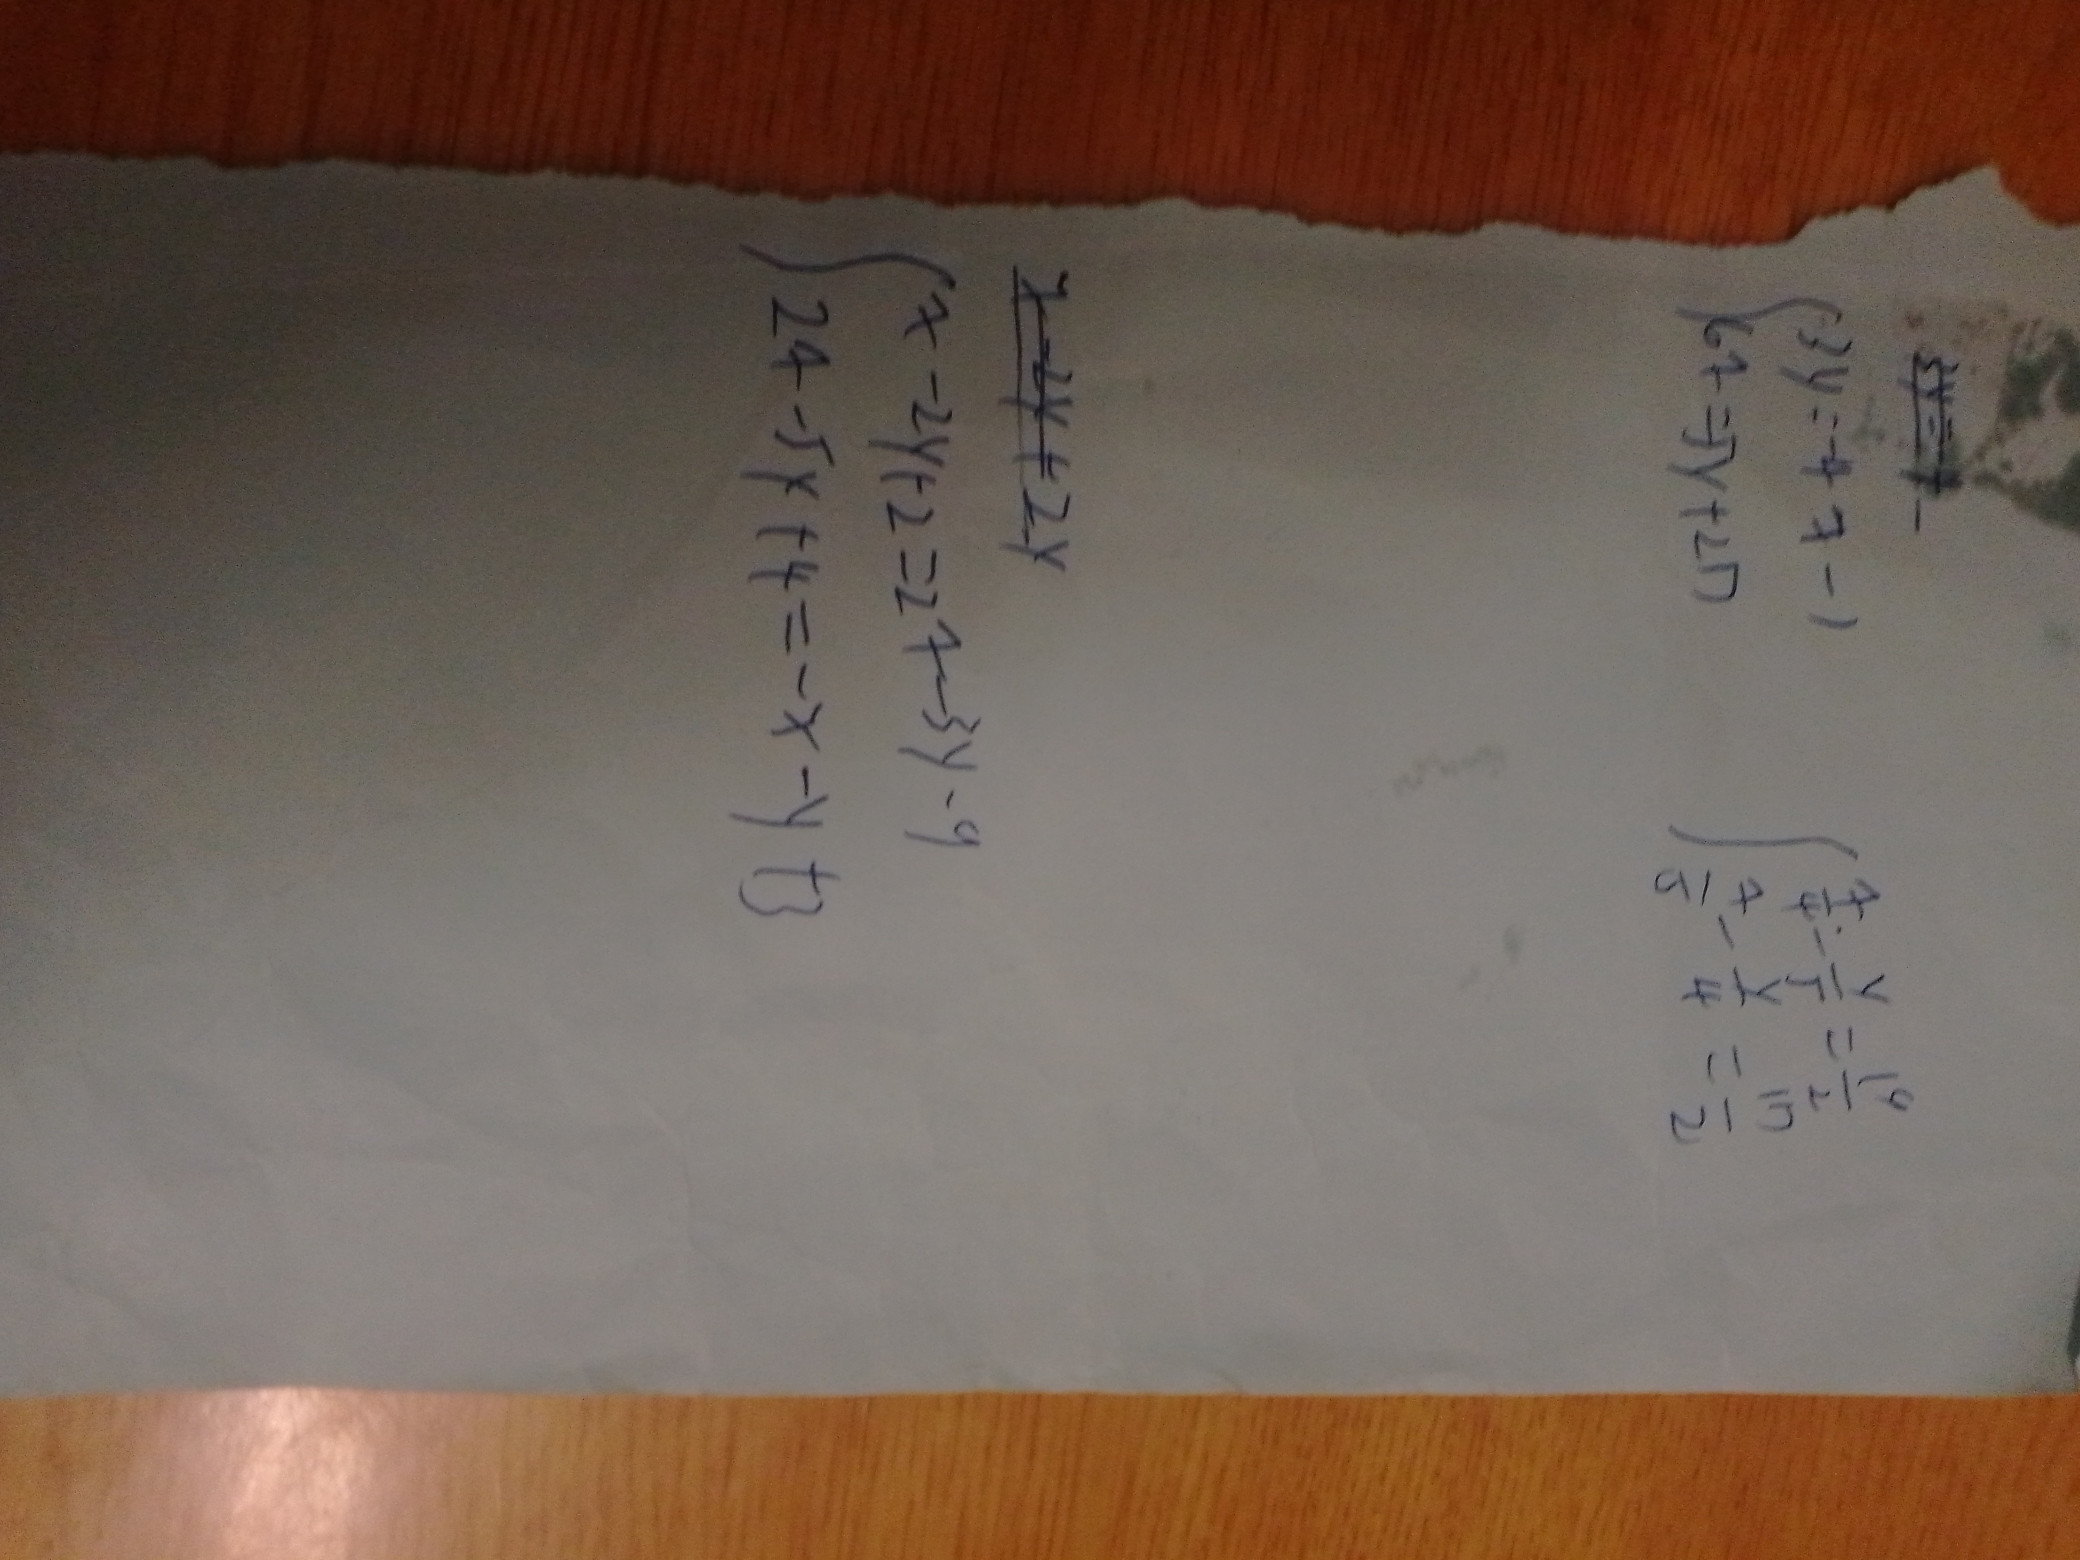 3y=-4x-1
6x=5y+2n
x/4-y/5=19/2
x/5-y/4=n/2
x-2y+2=2x-3y-9
2x-5y+4=-x-y+3